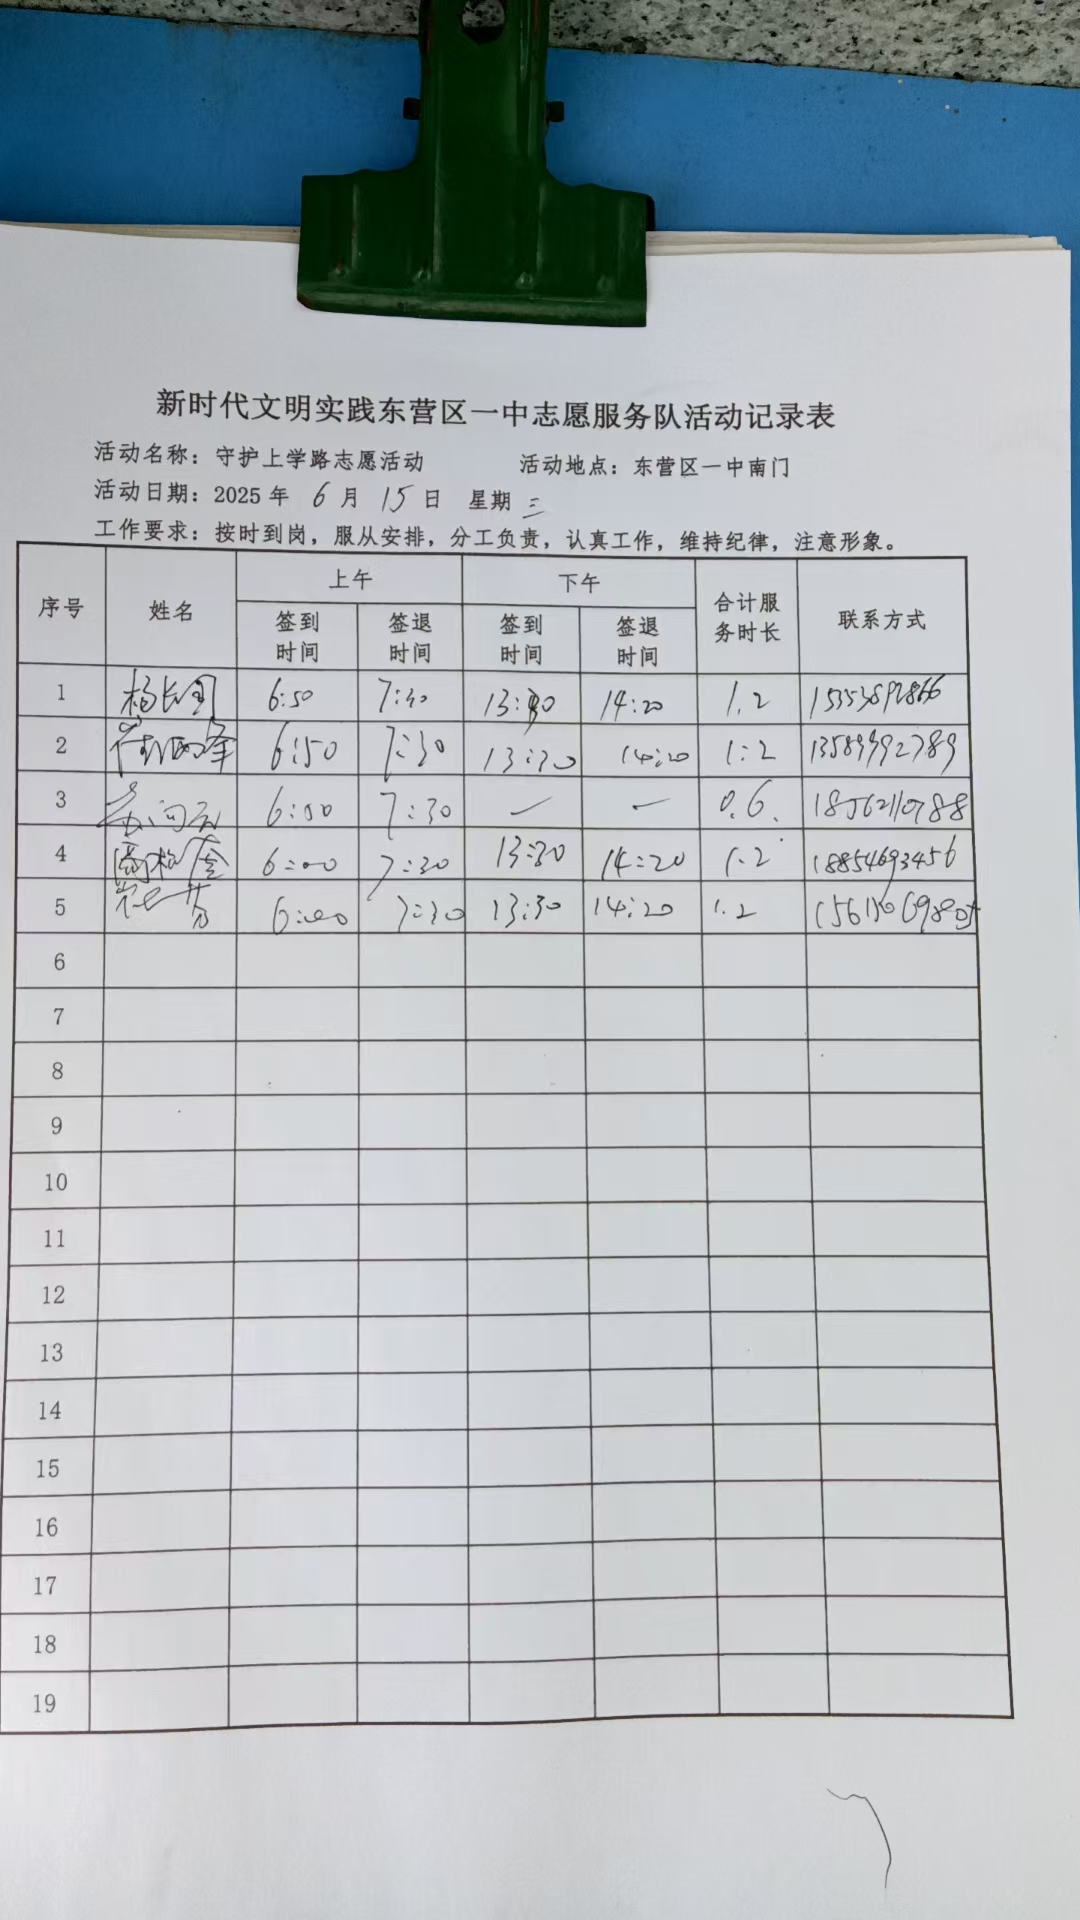 新时代文明实践东营区一中志愿服务队活动记录表
活动名称：守护上学路志愿活动 活动地点：东营区一中南门
活动日期：2025年 6月 15日 星期三
工作要求：按时到岗，服从安排，分工负责，认真工作，维持纪律，注意形象。
序号 姓名 上午 下午 合计服务时长 联系方式
签到时间 签退时间 签到时间 签退时间
1 6:50 7:30 13:30 14:20 1.2 15353892866
2 6:50 7:30 13:30 14:20 1:2 13589992789
3 6:50 7:30 — — 0.6.
4 6:00 7:30 13:30 14:20 1.2 18854693456
5 6:00 7:30 13:30 14:20 1.2
6
7
8
9
10
11
12
13
14
15
16
17
18
19